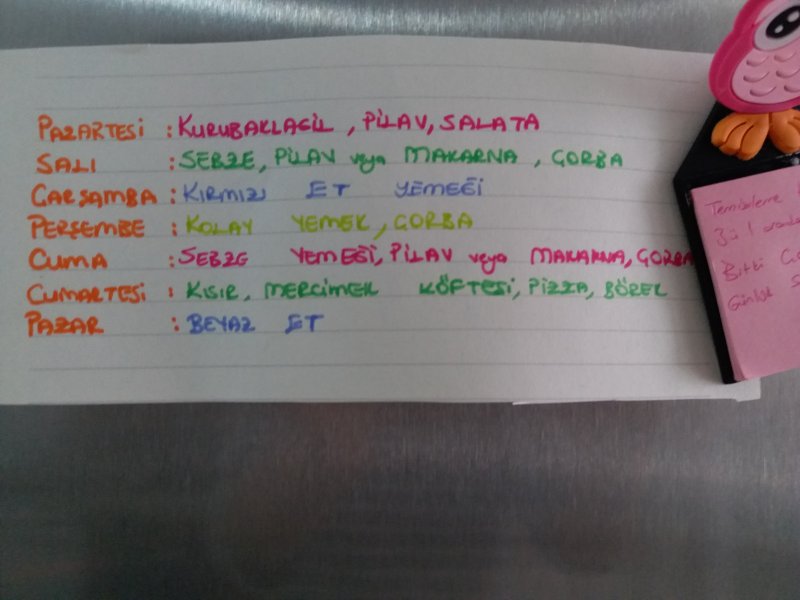 PAZARTESİ : KURUBAKLAGİL, PİLAV, SALATA
SALI : SEBZE, PİLAV veya MAKARNA, ÇORBA
ÇARŞAMBA : KIRMIZI ET YEMEĞİ
PERŞEMBE : KOLAY YEMEK, ÇORBA
CUMA : SEBZE YEMEĞİ, PİLAV veya MAKARNA, ÇORBA
CUMARTESİ : KISIR, MERCİMEK KÖFTESİ, PİZZA, BÖREK
PAZAR : BEYAZ ET
Temizleme
3 ü 1
Bitki
Günlük